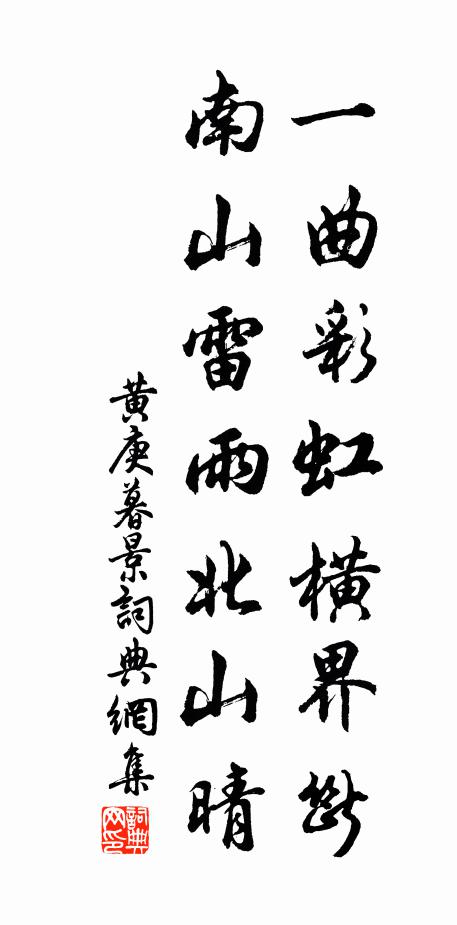 一曲彩虹橫界斷
南山雷雨北山晴
黃庚暮景詞典網集
詞典网印